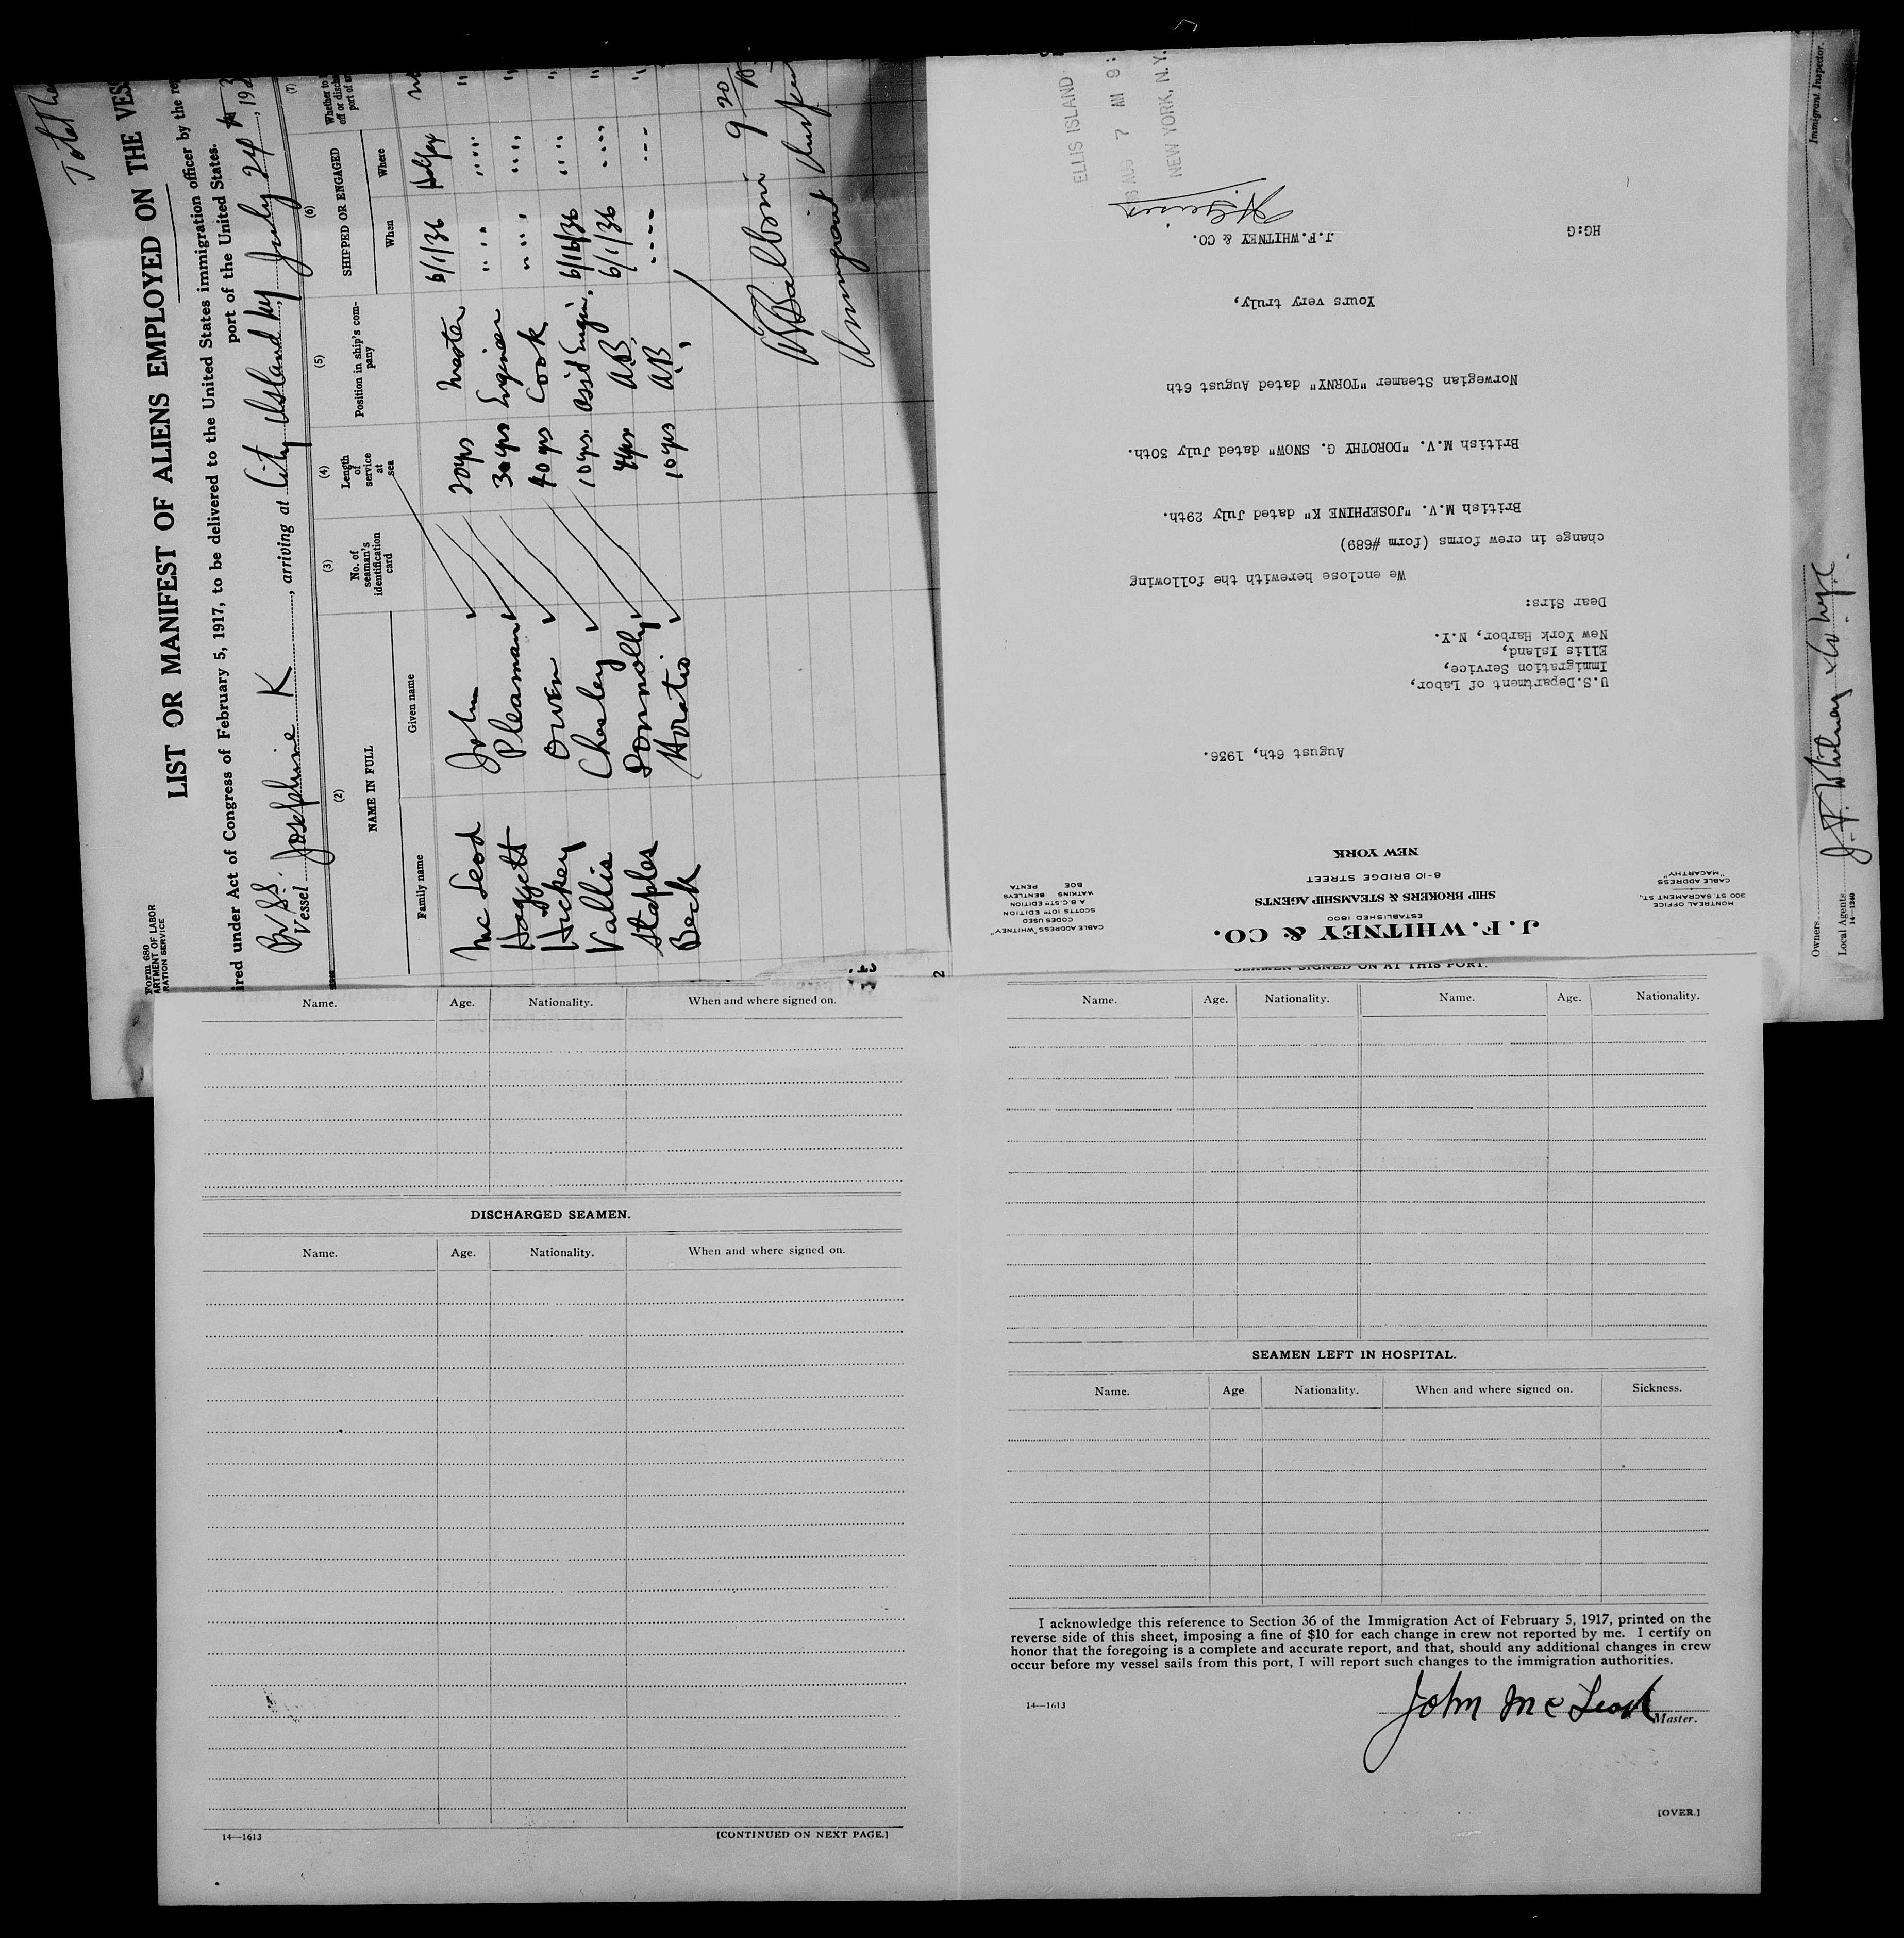 Total
Form 680
ARTMENT OF LABOR
RATION SERVICE
LIST OR MANIFEST OF ALIENS EMPLOYED ON THE VES
ired under Act of Congress of February 5, 1917, to be delivered to the United States immigration officer by the re
port of the United States.
Br. S.S.
Vessel Josephine K, arriving at City Island NY July 24, 193
(2)
(3)
(4)
(5)
(6)
(7)
NAME IN FULL
No. of seaman's identification card
Length of service at sea
Position in ship's com-pany
SHIPPED OR ENGAGED
Whether to
off or disch
port of ar
Family name
Given name
When
Where
Mc Leod John 20yrs Master 6/1/36 Halifax
Haggett Pleaman 30yrs Engineer " " " " " " " "
Hickey Owen 40 yrs Cook " " " " " " " "
Vallis Chesley 10 yrs Assd Engin. 6/16/36 " " " "
Staples Donnolly 4yrs A.B. 6/1/36 " " " "
Beck Horatio 10 yrs A.B. " " " " " " "
Balboni 9 20
Immigrant Inspect
J. F. WHITNEY & CO.
ESTABLISHED 1800
SHIP BROKERS & STEAMSHIP AGENTS
8-10 BRIDGE STREET
NEW YORK
MONTREAL OFFICE
300 ST. SACRAMENT ST.,
CABLE ADDRESS
"MACARTHY"
CABLE ADDRESS "WHITNEY"
CODES USED
SCOTTS 10TH EDITION
A.B.C. 5TH EDITION
WATKINS BENTLEYS
BOE PENTA
August 6th, 1936.
U.S.Department of Labor,
Immigration Service,
Ellis Island,
New York Harbor, N.Y.
Dear Sirs:
We enclose herewith the following
change in crew forms (form #689)
British M.V. "JOSEPHINE K" dated July 29th.
British M.V. "DOROTHY G. SNOW" dated July 30th.
Norwegian Steamer "TORNY" dated August 6th
Yours very truly,
J.F.WHITNEY & CO.
HG:G
ELLIS ISLAND
AUG 7 AM 9:
NEW YORK, N.Y.
Immigrant Inspector.
Owners
Local Agents J. F. Whitney & Co. NYC.
14—1240
2
Name. Age. Nationality. When and where signed on.
DISCHARGED SEAMEN.
Name. Age. Nationality. When and where signed on.
14—1613
[CONTINUED ON NEXT PAGE.]
SEAMEN SIGNED ON AT THIS PORT.
Name. Age. Nationality. Name. Age. Nationality.
SEAMEN LEFT IN HOSPITAL.
Name. Age Nationality. When and where signed on. Sickness.
I acknowledge this reference to Section 36 of the Immigration Act of February 5, 1917, printed on the
reverse side of this sheet, imposing a fine of $10 for each change in crew not reported by me. I certify on
honor that the foregoing is a complete and accurate report, and that, should any additional changes in crew
occur before my vessel sails from this port, I will report such changes to the immigration authorities.
14—1613
John McLeod
Master.
[OVER.]